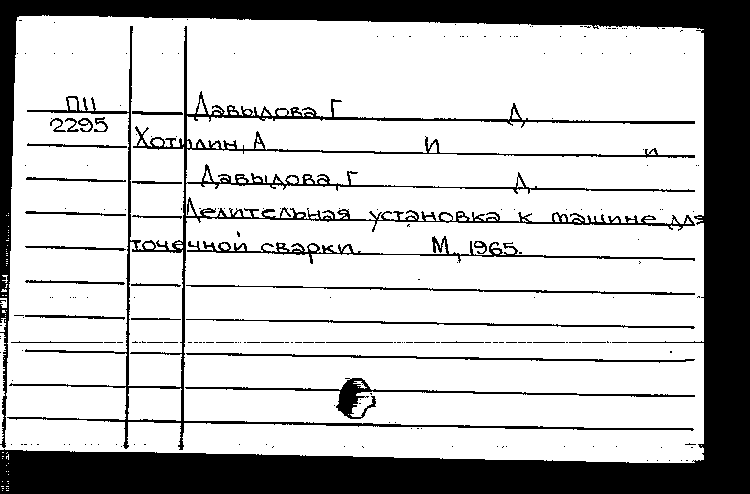 П11 Давыдова, Г Д.
2295 Хотилин, А И и
Давыдова, Г Д.
Делительная установка к машине для
точечной сварки. М., 1965.